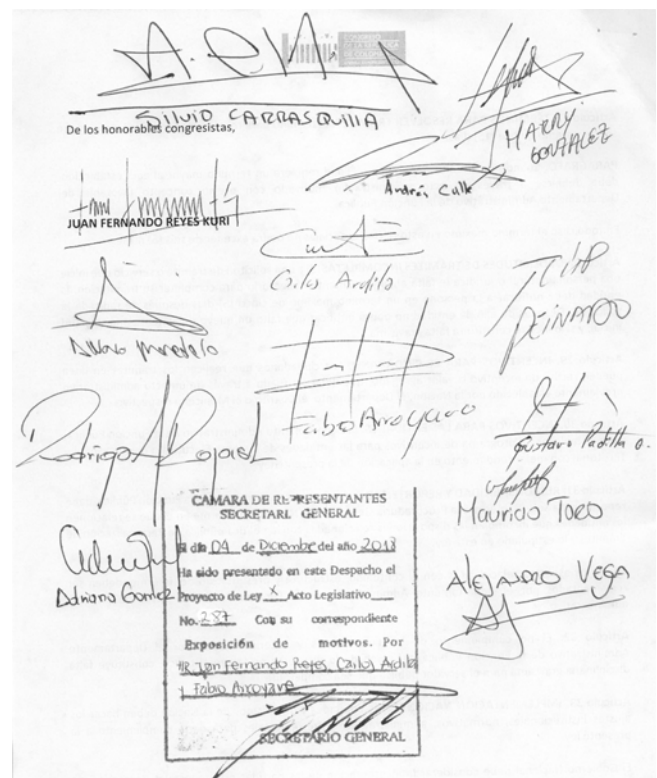 SILVIO CARRASQUILLA
De los honorables congresistas,
HARRY
GONZALEZ
Andrés Calle
JUAN FERNANDO REYES KURI
Carlos Ardila
PEINADO
Fabio Arroyave
Rodrigo A Rojas L
Gustavo Padilla O.
Mauricio TORO
CAMARA DE REPRESENTANTES
SECRETARI GENERAL
El día 04 de Diciembre del año 2018
Ha sido presentado en este Despacho el
Proyecto de Ley X Acto Legislativo
No. 287 Con su correspondiente
Exposición de motivos. Por
HR Juan Fernando Reyes, Carlos Ardila
y Fabio Arroyave
SECRETARIO GENERAL
Adriana Gomez
ALEJANDRO VEGA